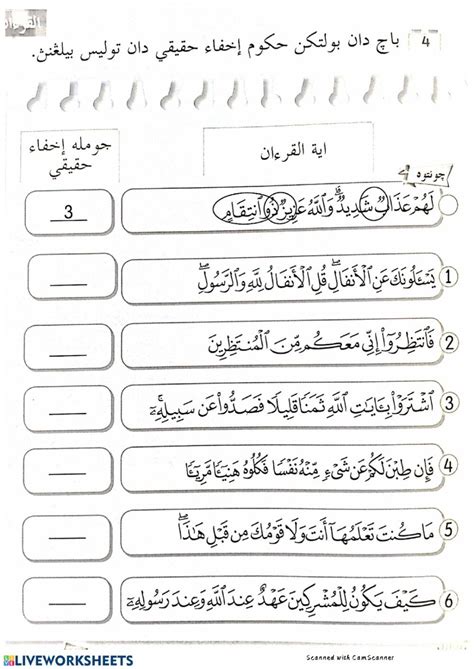 القرءان
4 باچ دان بولتکن حکوم إخفاء حقيقي دان توليس بيلڠنڽ.
اية القرءان
جومله إخفاء حقيقي
چونتوه
لَهُمْ عَذَابٌ شَدِيدٌ وَاللَّهُ عَزِيزٌ ذُو انتِقَامٍ
3
1 يَسْـَٔلُونَكَ عَنِ ٱلْأَنفَالِ ۖ قُلِ ٱلْأَنفَالُ لِلَّهِ وَٱلرَّسُولِ ۖ
2 فَٱنتَظِرُوٓا۟ إِنِّي مَعَكُم مِّنَ ٱلْمُنتَظِرِينَ
3 ٱشْتَرَوْا۟ بِـَٔايَٰتِ ٱللَّهِ ثَمَنًا قَلِيلًا فَصَدُّوا۟ عَن سَبِيلِهِۦٓ ۚ
4 فَإِن طِبْنَ لَكُمْ عَن شَىْءٍ مِّنْهُ نَفْسًا فَكُلُوهُ هَنِيٓـًٔا مَّرِيٓـًٔا
5 مَا كُنتَ تَعْلَمُهَآ أَنتَ وَلَا قَوْمُكَ مِن قَبْلِ هَٰذَا ۖ
6 كَيْفَ يَكُونُ لِلْمُشْرِكِينَ عَهْدٌ عِندَ ٱللَّهِ وَعِندَ رَسُولِهِۦٓ
LIVEWORKSHEETS
Scanned with CamScanner